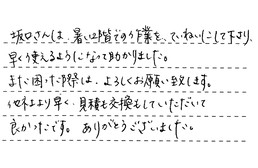 坂口さんは、暑い2階での作業を、ていねいにして下さり、
早く使えるようになって助かりました。
また困った際は、よろしくお願い致します。
他社より早く、見積も交換もしていただいて
良かったです。ありがとうございました。